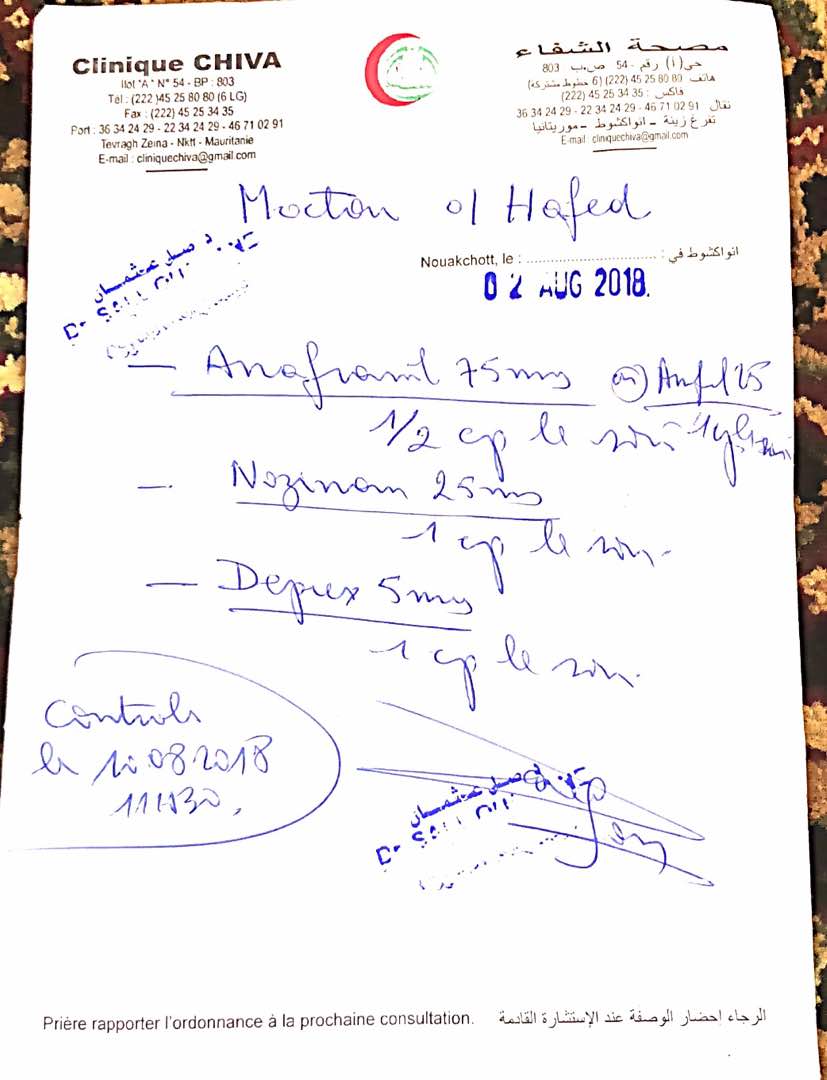 Clinique CHIVA
Ilot "A" N° 54 - BP : 803
Tél : (222 )45 25 80 80 (6 LG)
Fax : (222) 45 25 34 35
Port : 36 34 24 29 - 22 34 24 29 - 46 71 02 91
Tevragh Zeina - Nktt - Mauritanie
E-mail : cliniquechiva@gmail.com
مصحة الشفاء
حي (أ) رقم - 54 ص.ب 803
هاتف 80 80 25 45 (222) (6 خطوط مشتركة)
فاكس : 35 34 25 45 (222)
نقال 36 34 24 29 - 22 34 24 29 - 46 71 02 91
تفرغ زينة - انواكشوط - موريتانيا
E-mail : cliniquechiva@gmail.com
Moctar o/ Hafed
د صل عثمان
Dr SALL
Nouakchott, le : .............................. : انواكشوط في
0 2 AUG 2018.
— Anafranil 75mg (ou) Anfl 25
1/2 cp le soir 1 cp le soir
— Nozinan 25mg
1 cp le soir.
— Deprex 5mg
1 cp le soir.
Controle
le 10 08 2018
11H30,
د صل عثمان
Dr SALL
Prière rapporter l'ordonnance à la prochaine consultation. الرجاء إحضار الوصفة عند الإستشارة القادمة